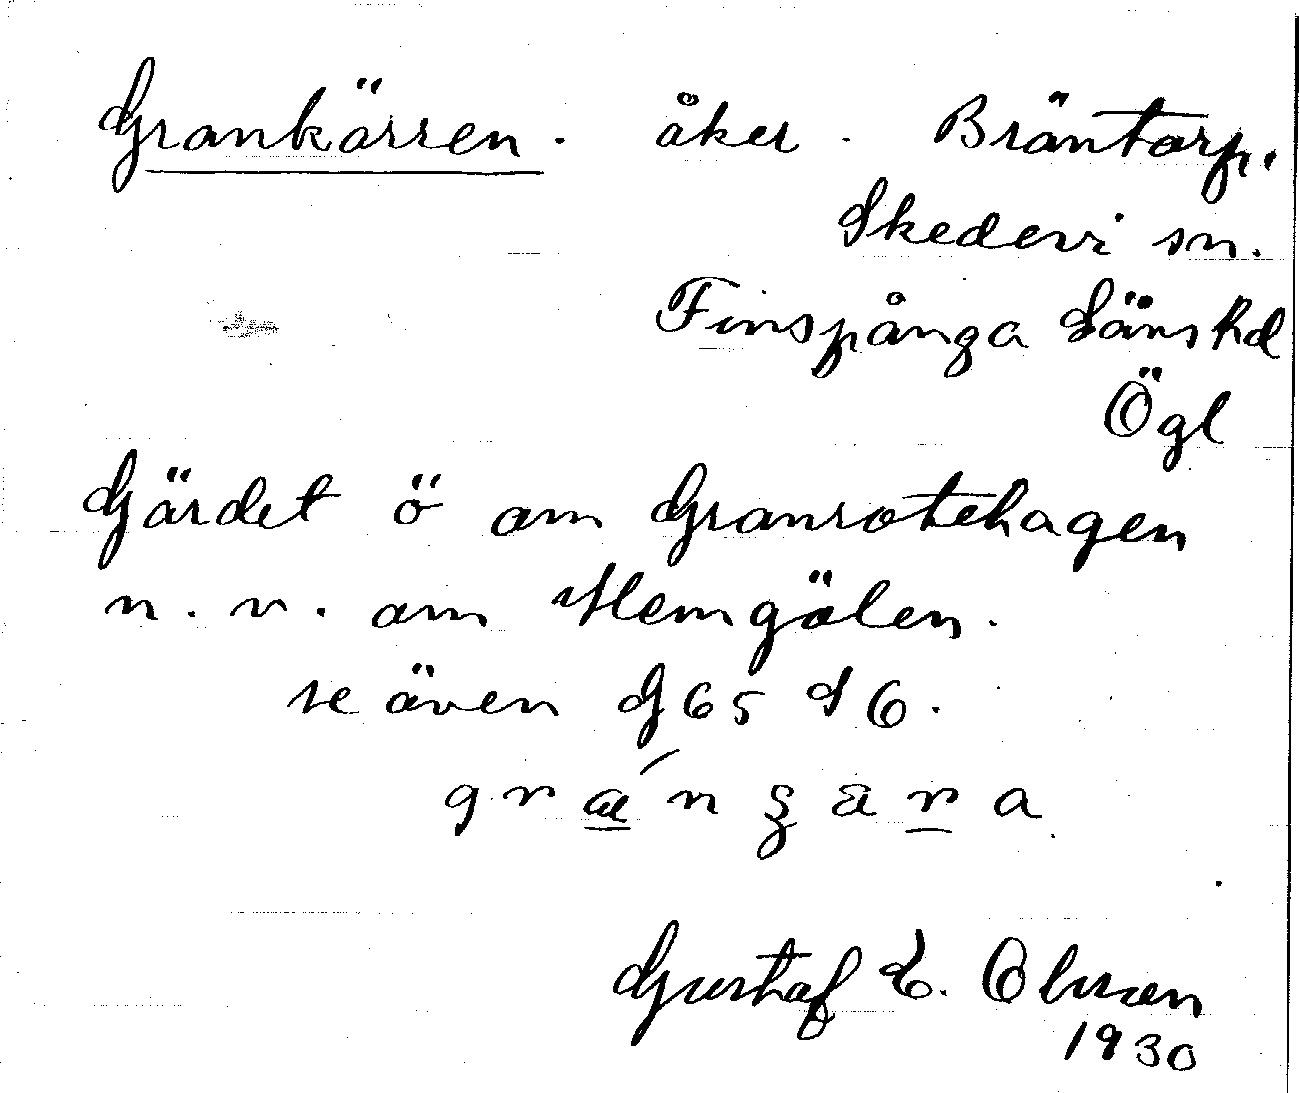 Grankärren. åker. Bräntorp.
Skedevi sn.
Finspånga Läns hd
Ögl
Gärdet ö om Granrotehagen
n. v. om Hemgölen.
se även G 65 S 6.
Gustaf E. Olsson
1930